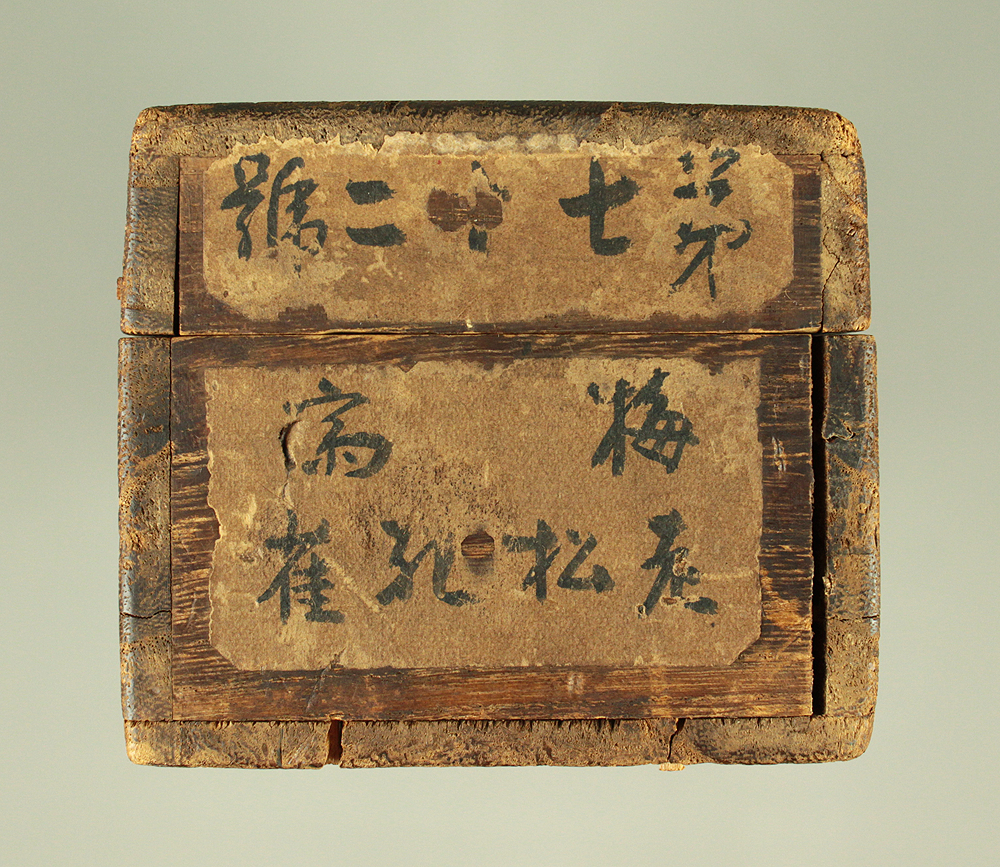 第七十二號
梅
老松孔雀